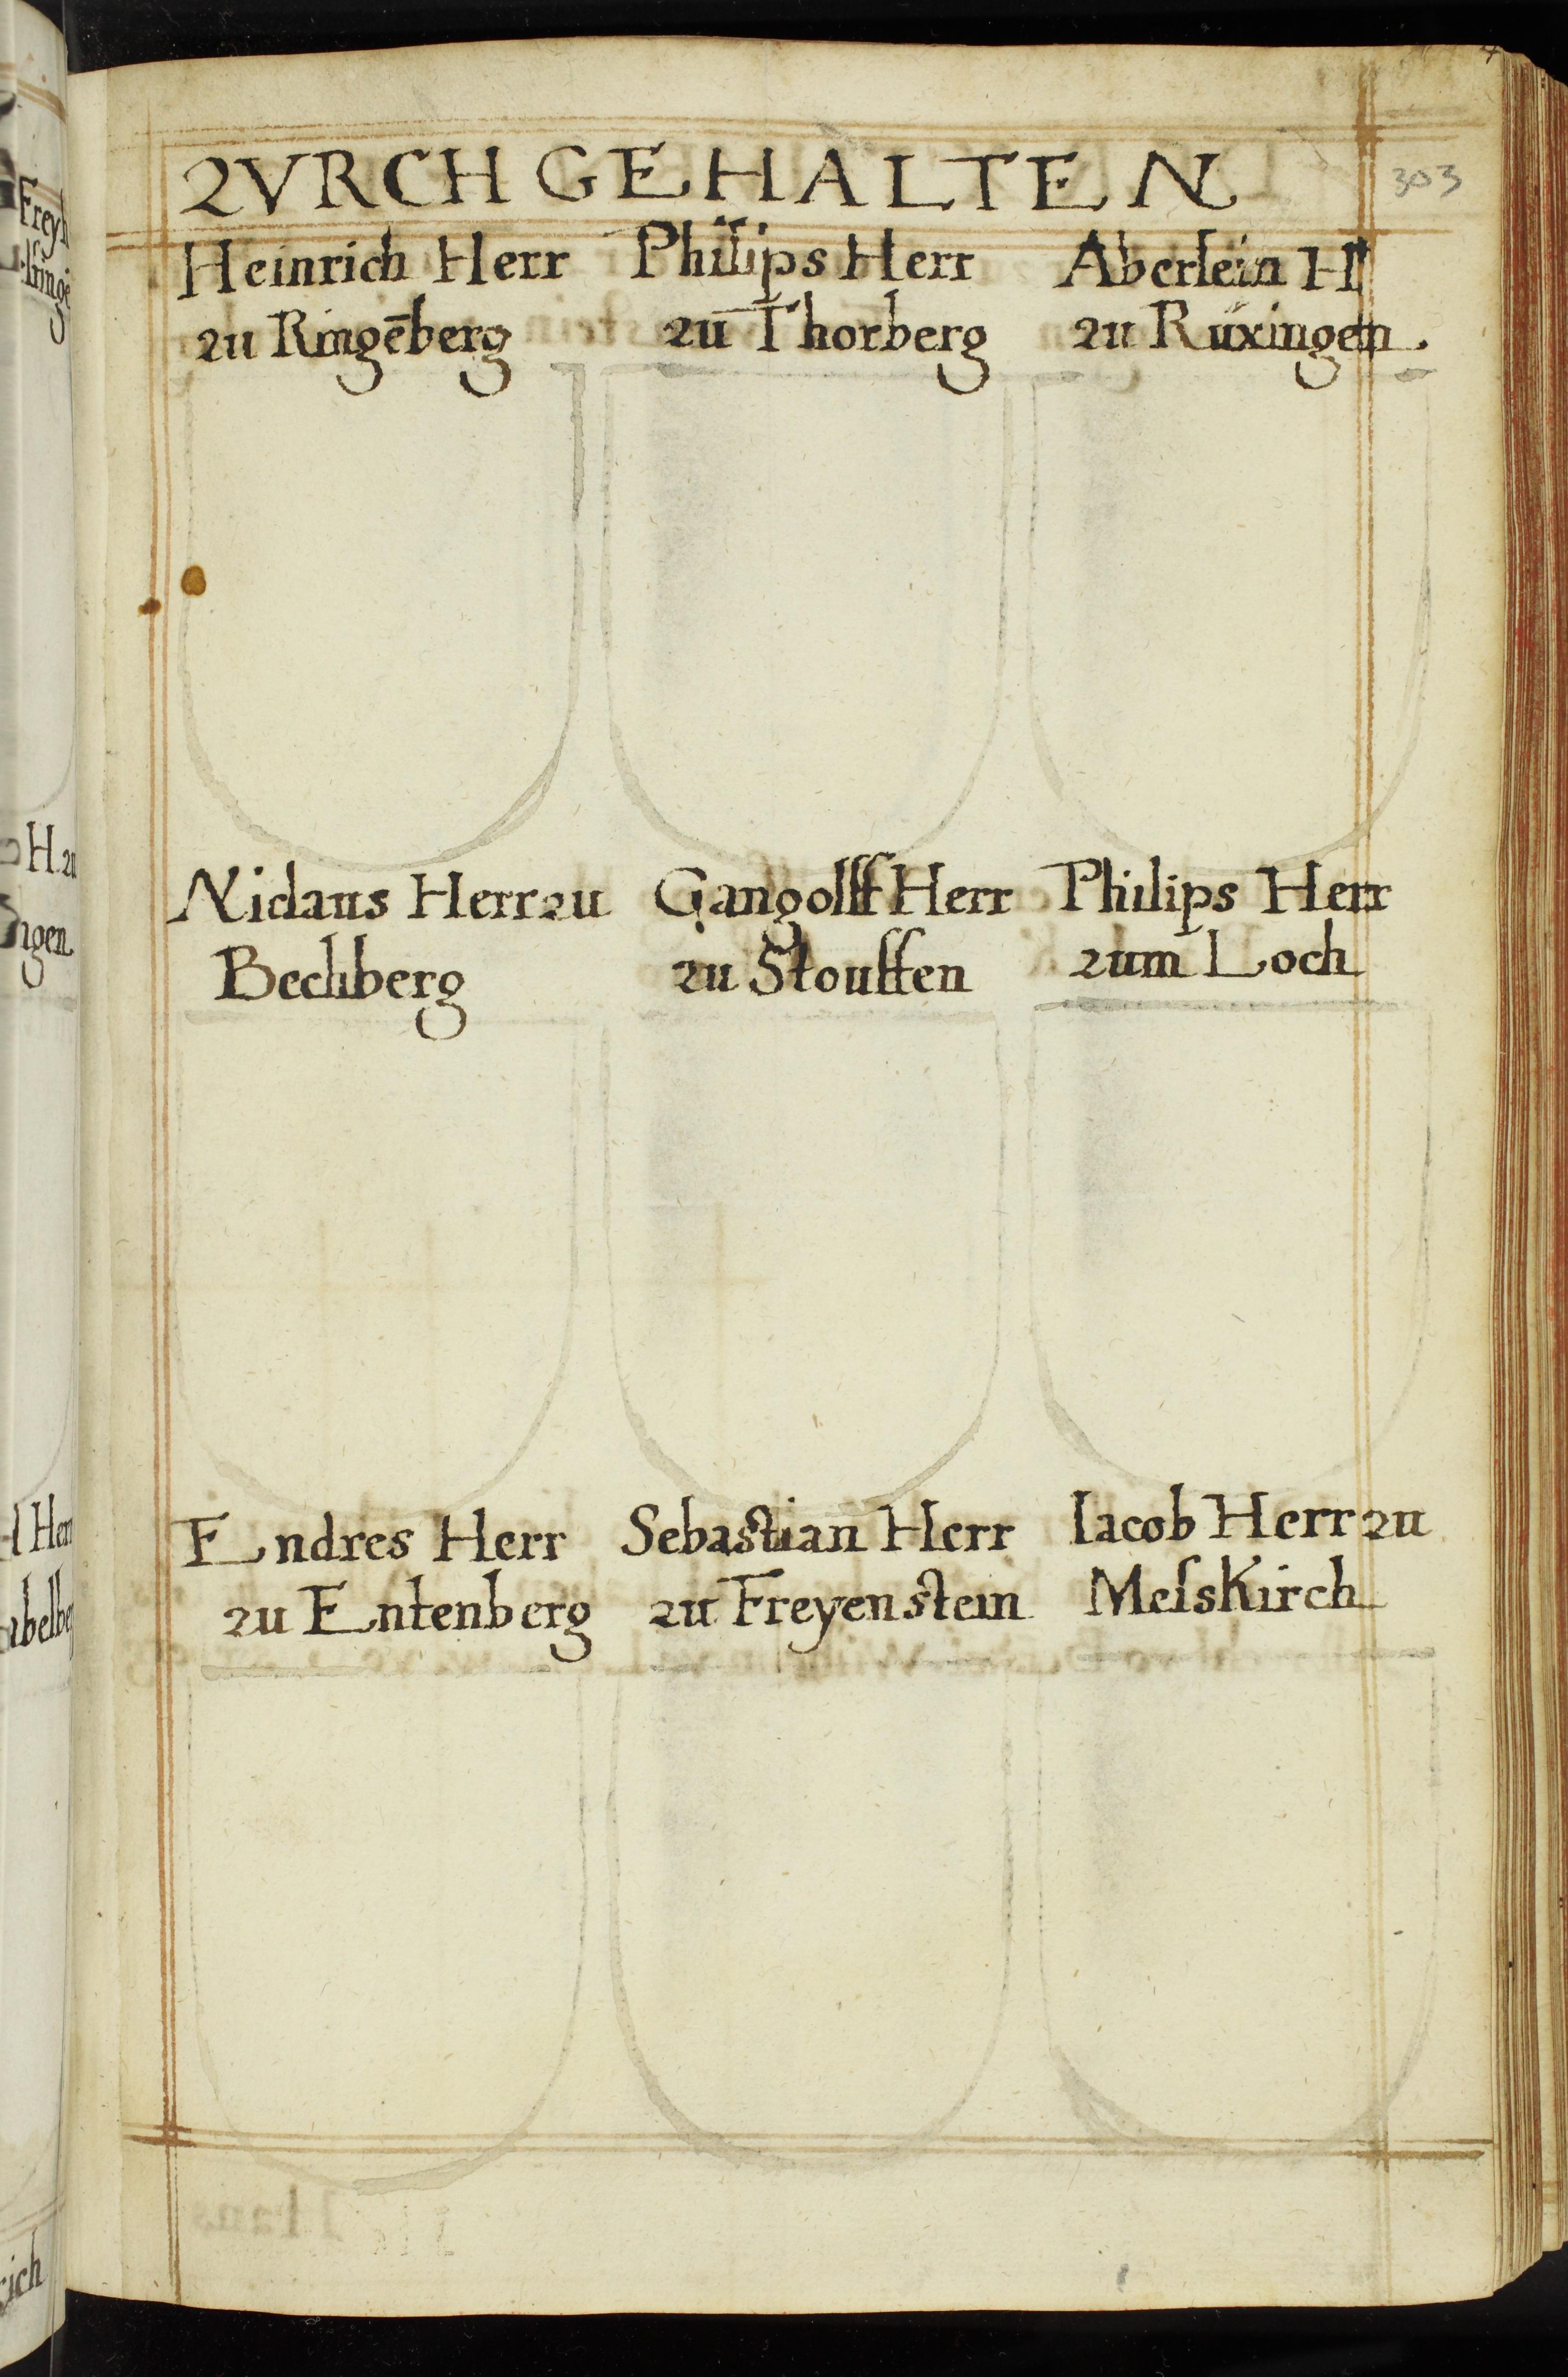 ZVRCH GEHALTEN
303
Heinrich Herr
zu Ringēberg
Philips Herr
zu Thorberg
Aberlein H
zu Rüxingen.
Niclaus Herr zu
Bechberg
Gangolff Herr
zu Stouffen
Philips Herr
zum Loch
Endres Herr
zu Entenberg
Sebastian Herr
zu Freyenstein
Iacob Herr zu
Meſskirch